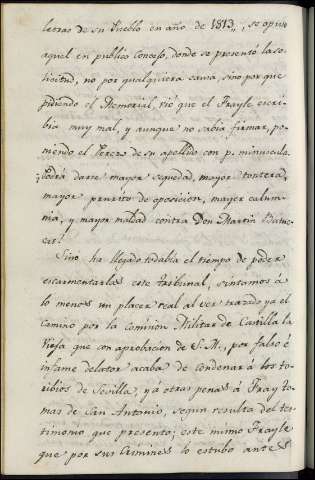 letras de su Pueblo en año de 1813,, se opuso
aquel en publico Concejo, donde se presentó la so-
licitud, no por qualquiera causa, sino por que
pidiendo el Memorial, vió que el Frayle escri-
bia muy mal, y aunque no sabia firmar, po-
niendo el Perez de su apellido con p. minuscula.
¿podrá darse mayor sequedad, mayor tontera,
mayor prurito de oposicion, mayor calum-
nia, y mayor maldad contra Don Martin Batue-
cas?
Sino ha llegado todabia el tiempo de poder
escarmentarlos este Tribunal, sintamos á
lo menos un placer real al ver trazado ya el
camino por la Comision Militar de Castilla la
Vieja que con aprobacion de S.M., por falso é
infame delator acaba de condenar á los to-
ribios de Sevilla, y á otras penas á Fray To-
mas de San Antonio, segun resulta del tes-
timonio que presento; este mismo Frayle
que por sus Crimenes lo estubo antes